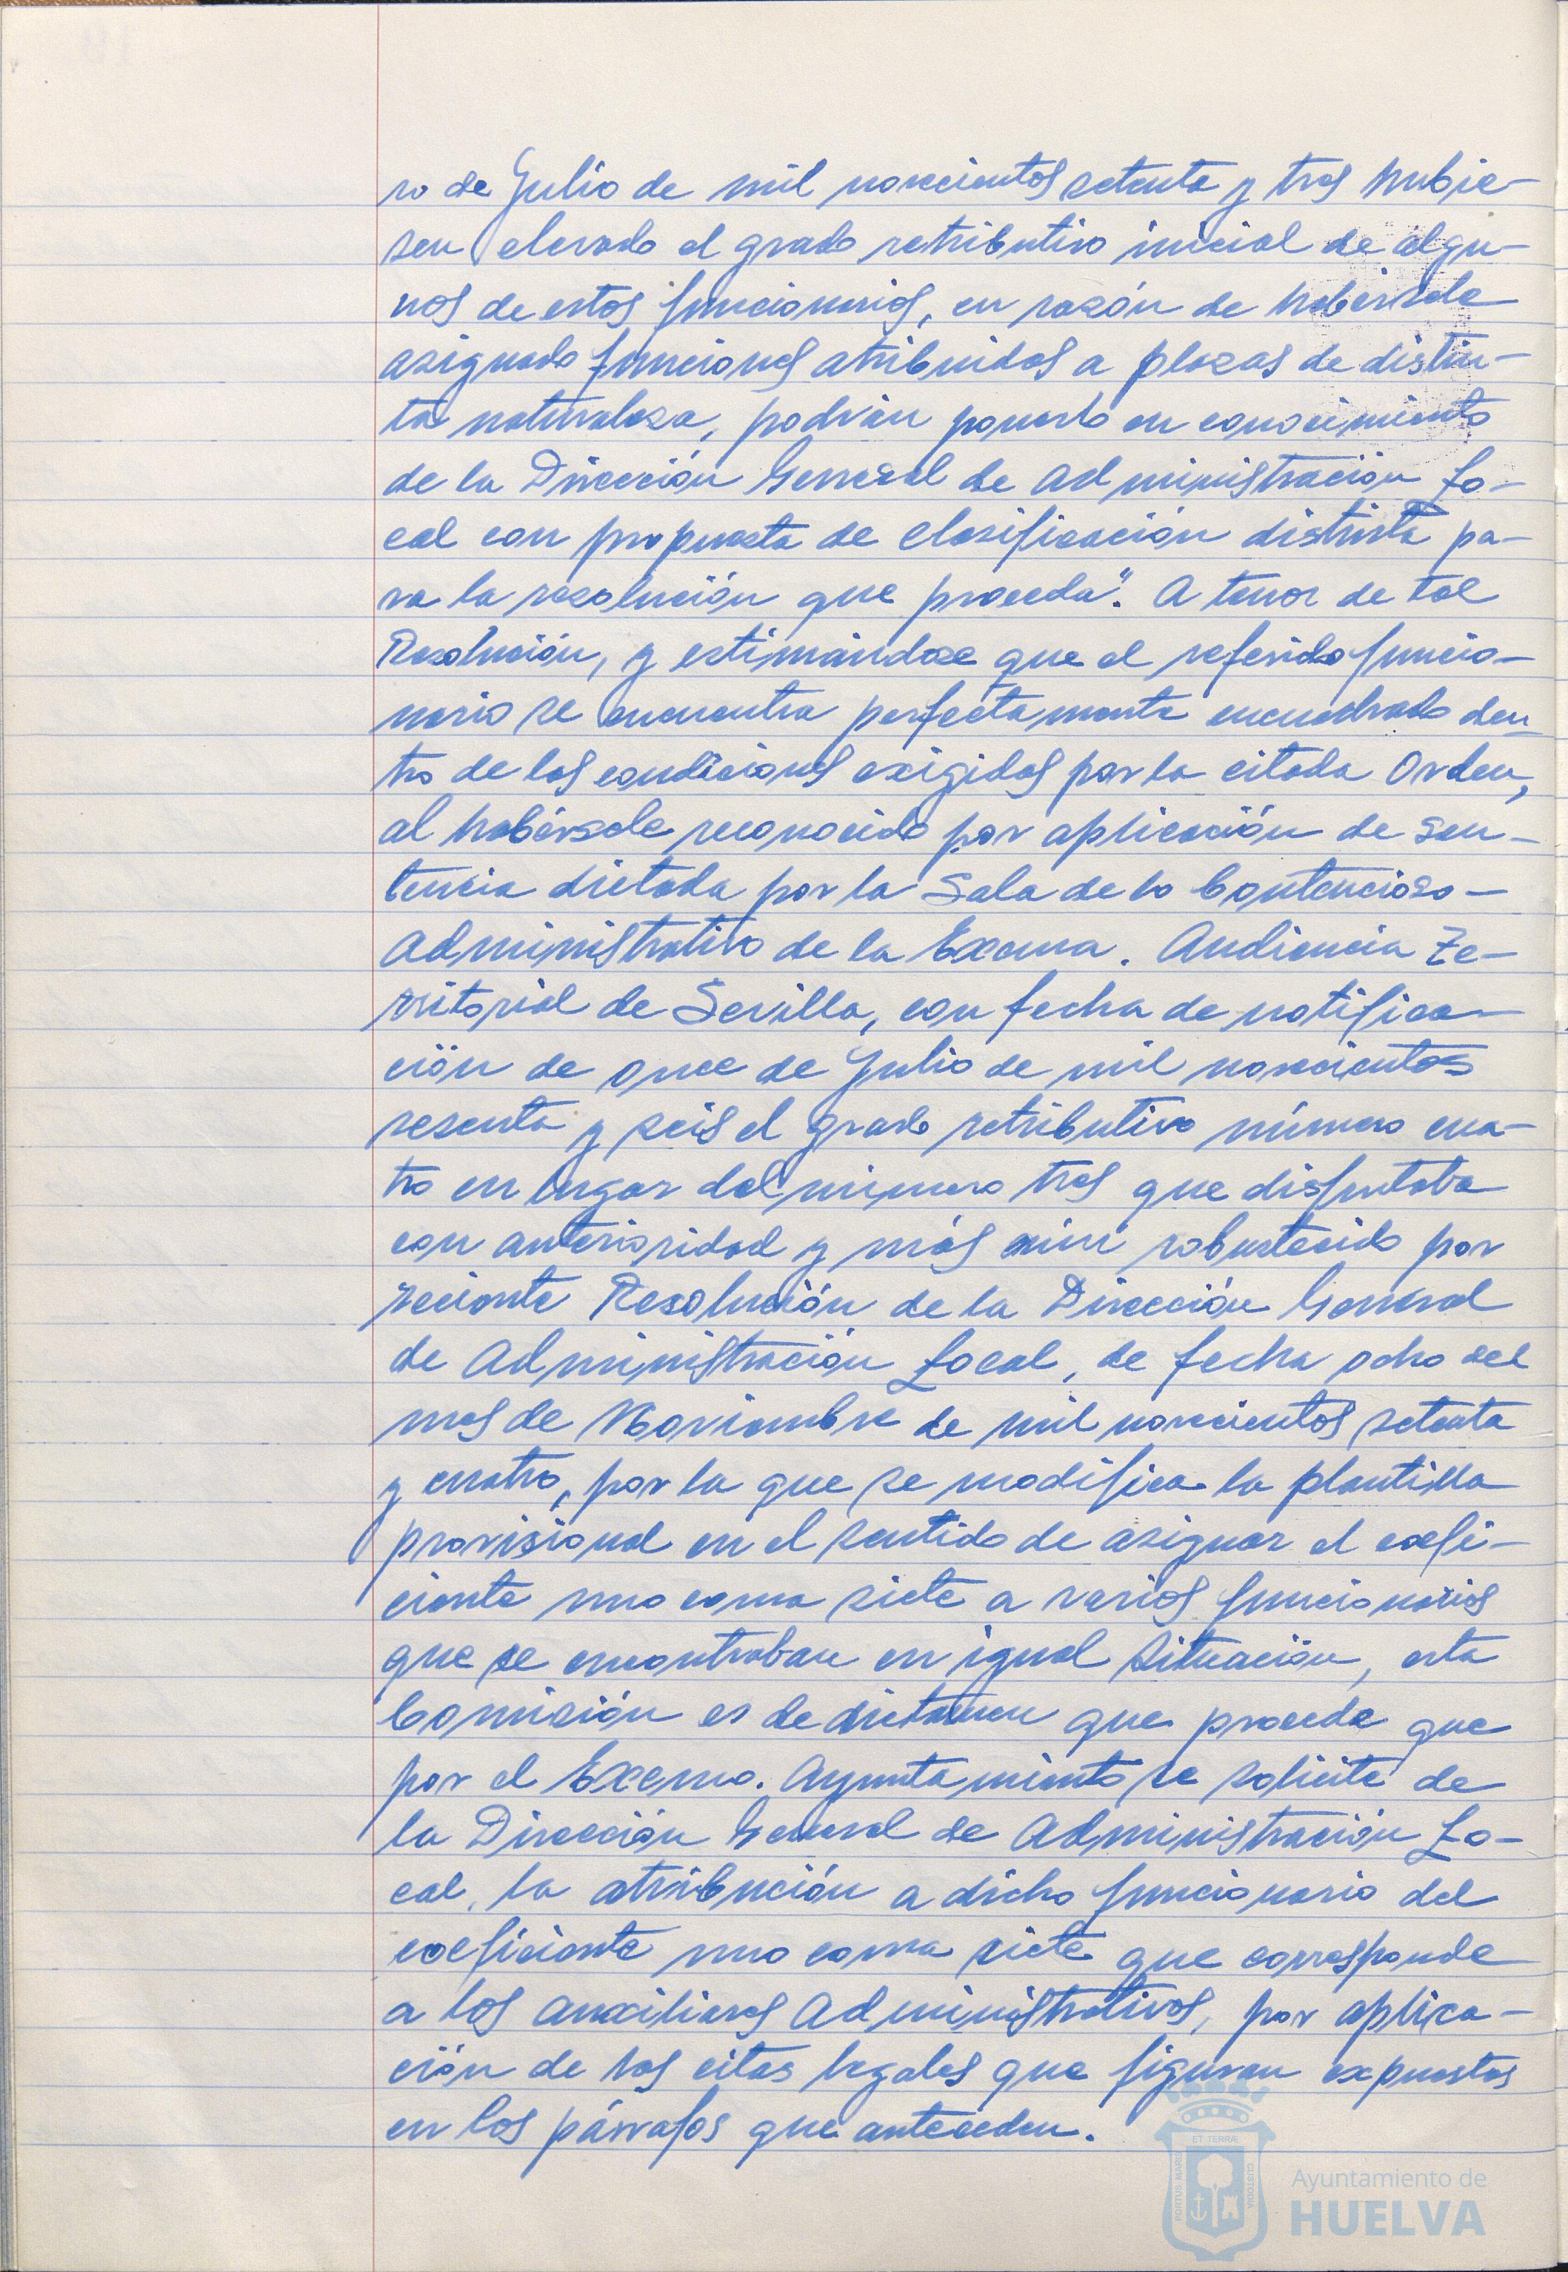 ro de Julio de mil novecientos setenta y tres hubie-
sen elevado el grado retributivo inicial de algu-
nos de estos funcionarios, en razón de habersele
asignado funciones atribuidas a plazas de distin-
ta naturaleza, podrán ponerlo en conocimiento
de la Dirección General de Administración Lo-
cal con propuesta de clasificación distinta pa-
ra la resolución que proceda". A tenor de tal
Resolución, y estimándose que el referido funcio-
nario se encuentra perfectamente encuadrado den-
tro de las condiciones exigidas por la citada Orden,
al habérsele reconocido por aplicación de sen-
tencia dictada por la Sala de lo Contencioso-
Administrativo de la Excma. Audiencia Te-
rritorial de Sevilla, con fecha de notifica-
ción de once de Julio de mil novecientos
sesenta y seis el grado retributivo número cua-
tro en lugar del número tres que disfrutaba
con anterioridad y más aún robustecido por
reciente Resolución de la Dirección General
de Administración Local, de fecha ocho del
mes de Noviembre de mil novecientos setenta
y cuatro, por la que se modifica la plantilla
provisional en el sentido de asignar el coefi-
ciente uno coma siete a varios funcionarios
que se encontraban en igual situación, esta
Comisión es de dictamen que procede que
por el Excmo. Ayuntamiento se solicite de
la Dirección General de Administración Lo-
cal, la atribución a dicho funcionario del
coeficiente uno coma siete que corresponde
a los Auxiliares Administrativos, por aplica-
ción de las citas legales que figuran expuestas
en los párrafos que anteceden.
PORTUS MARIS ET TERRÆ CUSTODIA
Ayuntamiento de
HUELVA